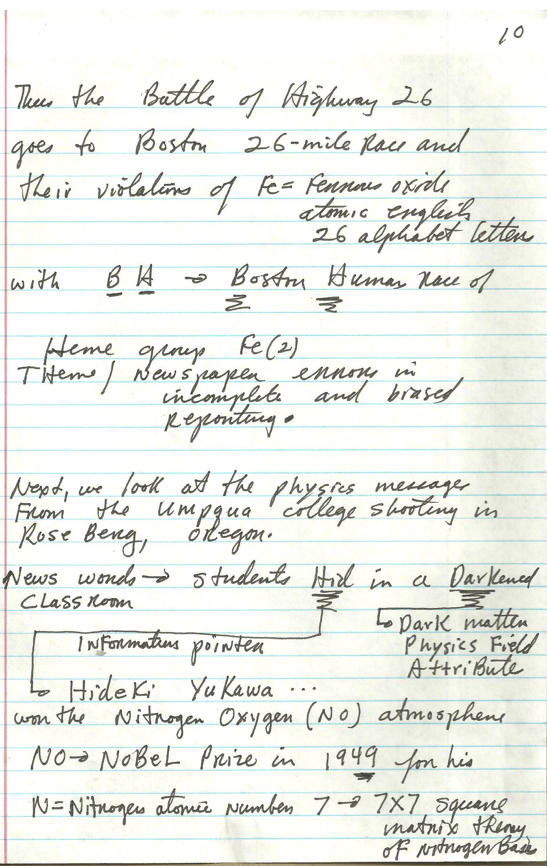 10
Thus the Battle of Highway 26
goes to Boston 26-mile Race and
their violations of Fe = Ferrous oxide
atomic english
26 alphabet letters
with B H → Boston Human Race of
Heme group Fe(2)
THeme / newspaper errors in
incomplete and biased
reporting.
Next, we look at the physics messages
From the Umpqua college shooting in
Rose Berg, Oregon.
News words → students Hid in a Darkened
classroom
Dark matter
Physics Field
Attribute
Information pointer
Hideki Yukawa ...
won the Nitrogen Oxygen (NO) atmosphere
NO → NOBeL Prize in 1949 for his
N = Nitrogen atomic number 7 → 7x7 square
matrix theory
of nitrogen Base